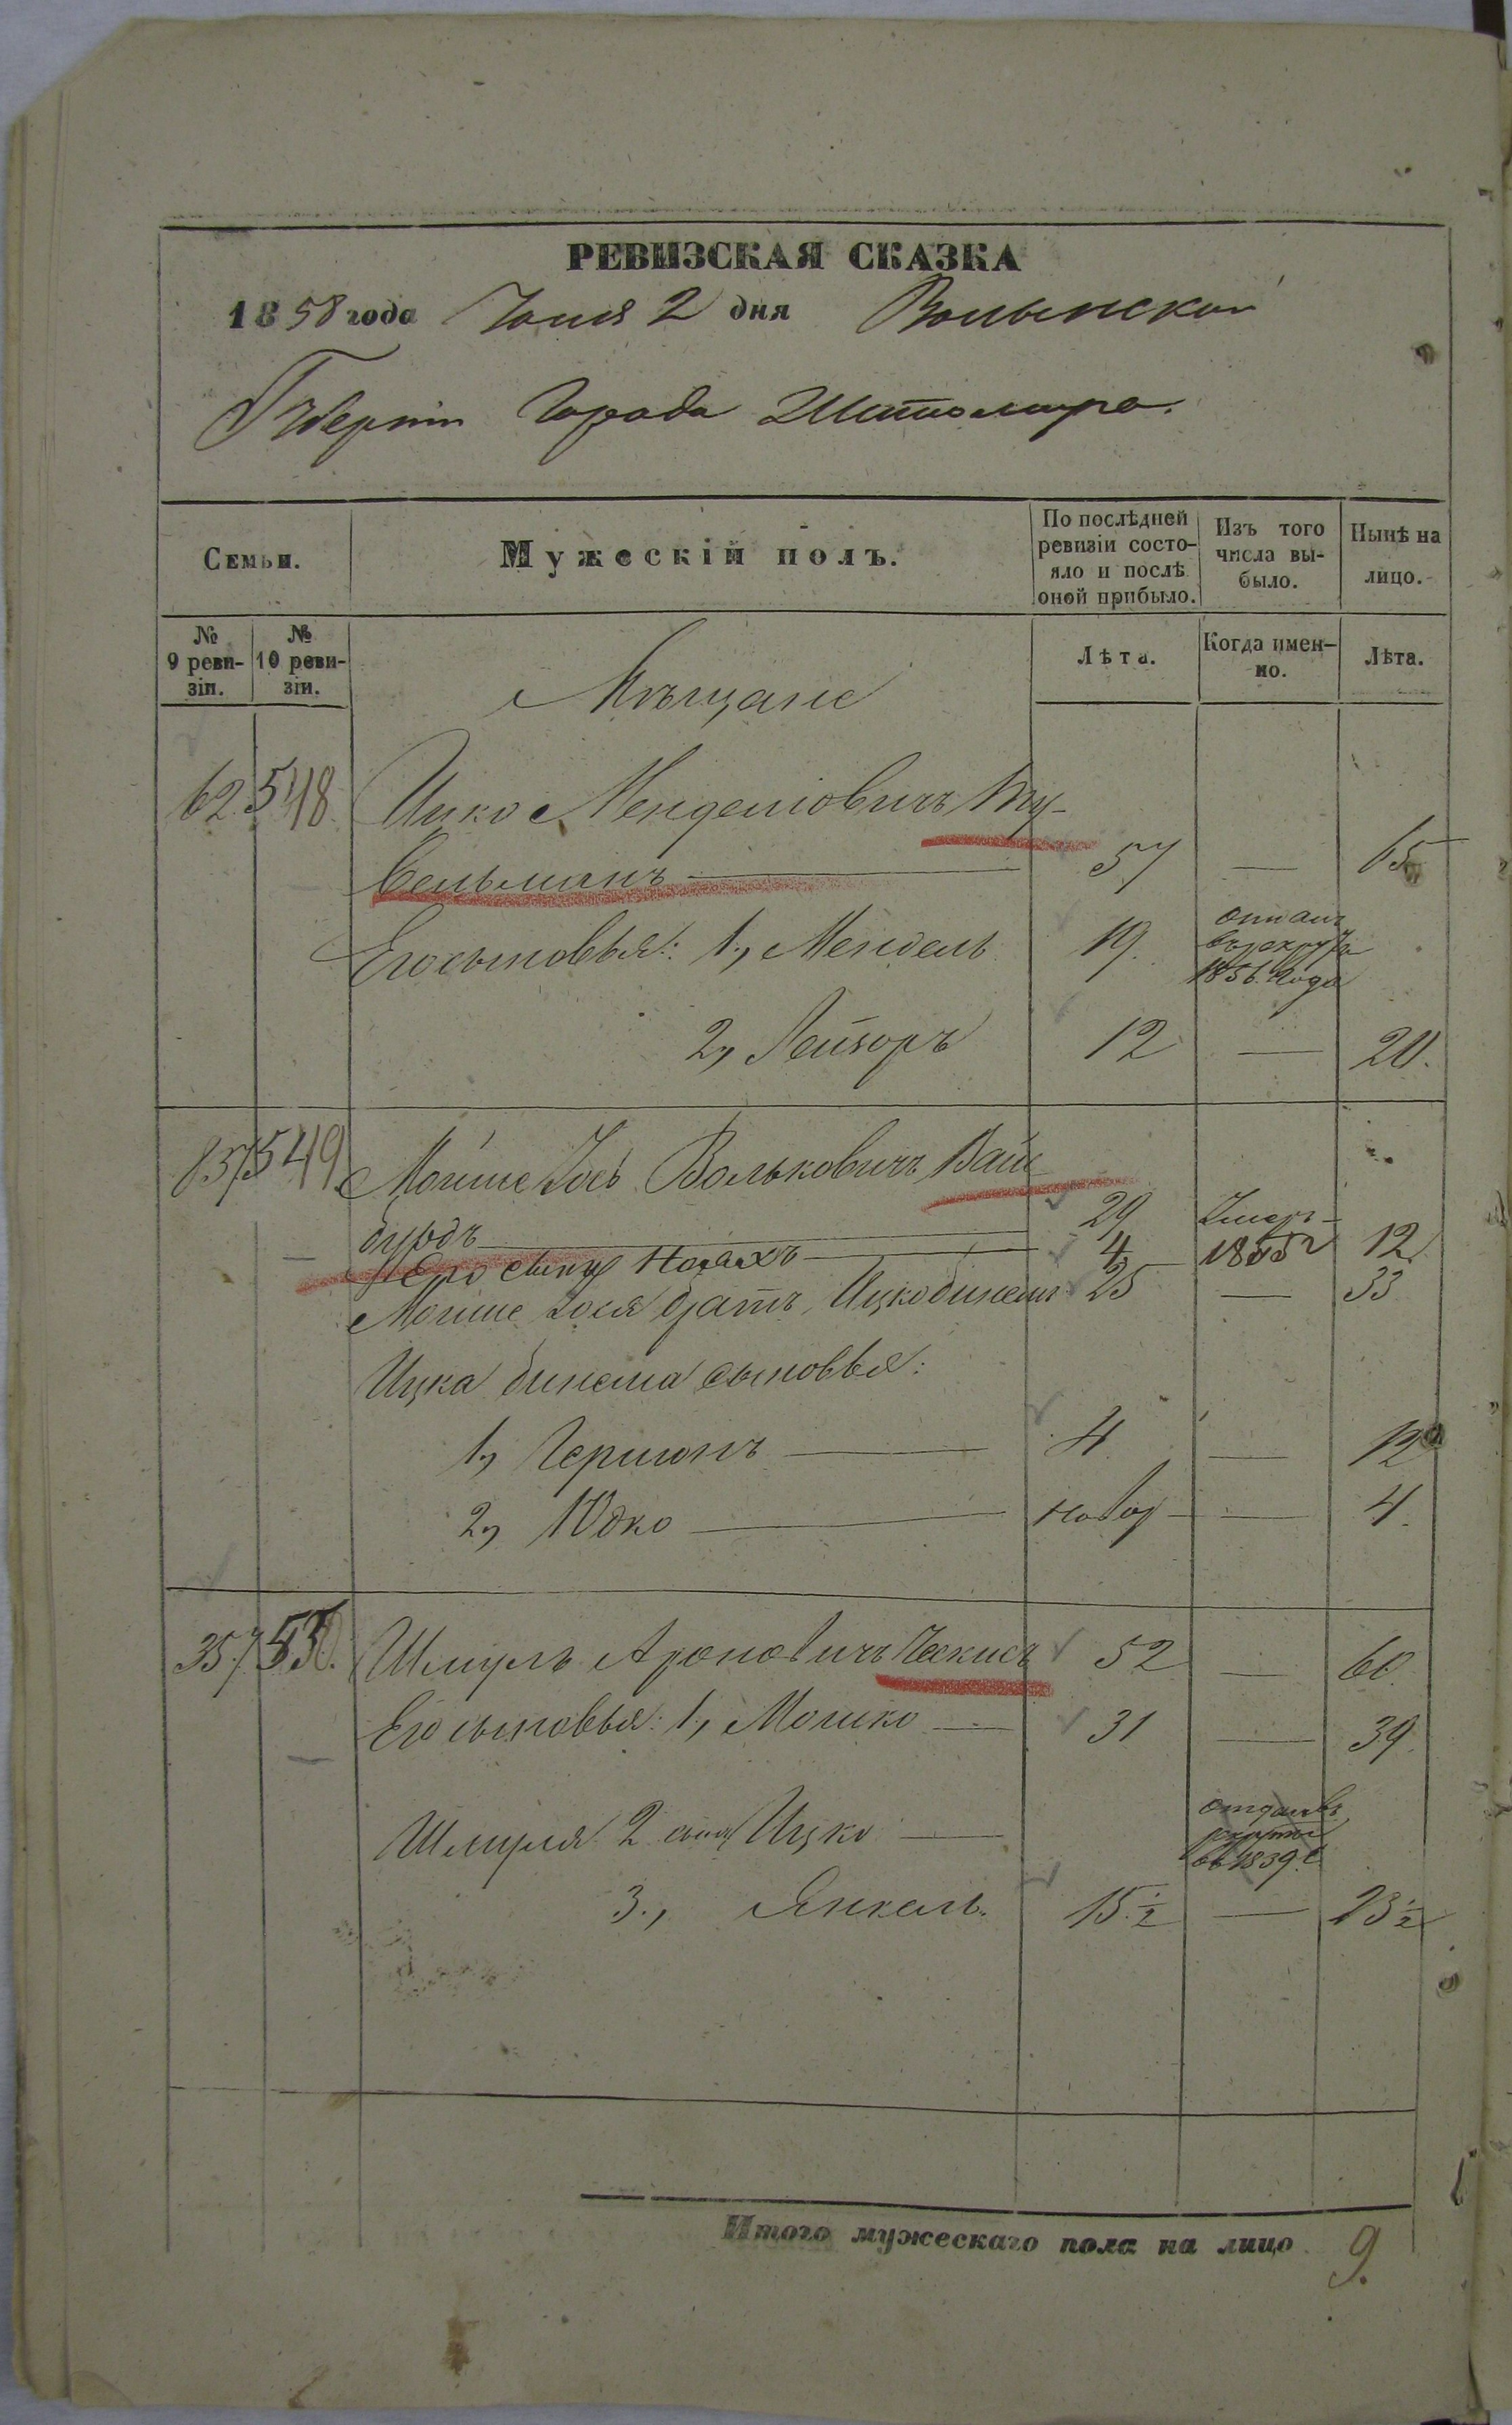 РЕВИЗСКАЯ СКАЗКА
1858 года Іюня 2 дня Волынской
Губерніи Города Житомира.
Семьи.
Мужескій полъ.
По послѣдней ревизіи состо-яло и послѣ оной прибыло.
Изъ того числа вы-было.
Нынѣ на лицо.
№ 9 реви-зіи.
№ 10 реви-зіи.
Лѣта.
Когда имен-но.
Лѣта.
Мѣщане
62 548 Ицко Менделіовичъ
вельманъ — 57 — 65
Его сыновья: 1, Мендель 19. отданъ
въ рекруты
1856 года
2, Лейзоръ 12 — 20.
857 549 Мойше Іось Вольковичъ Вай
бурдъ — 29 Умеръ
Его сынъ — 4 1855 г 12
Мойше Іося братъ, Ицко бинемъ 25 — 33
Ицка бинема сыновья:
1, Гершонъ — 4 — 12
2, Юдко — новор — 4.
357 550. Шмуль Ароновичъ Ческисъ 52 — 60.
Его сыновья: 1, Мошко — 31 — 39.
Шмуля 2 сынъ Ицко — отданъ въ
рекруты
въ 1839 г
3., Янкель. 15 1/2 — 23 1/2
Итого мужескаго пола на лицо 9.